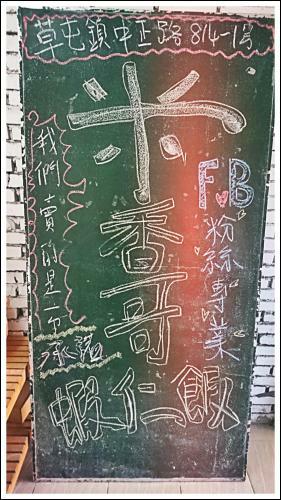 草屯鎮中正路814-1号
米香哥
蝦仁飯
FB
粉絲專業
我們賣的是一份
承諾